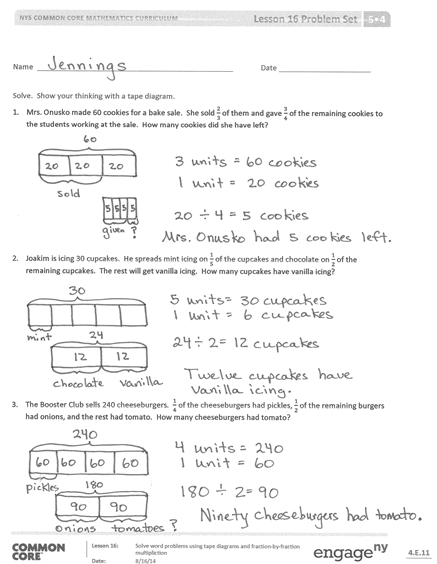 NYS COMMON CORE MATHEMATICS CURRICULUM
Lesson 16 Problem Set 5•4
Name Jennings
Date
Solve. Show your thinking with a tape diagram.
1. Mrs. Onusko made 60 cookies for a bake sale. She sold 2/3 of them and gave 3/4 of the remaining cookies to
the students working at the sale. How many cookies did she have left?
60
20 20 20
sold
5 5 5 5
given ?
3 units = 60 cookies
1 unit = 20 cookies
20 ÷ 4 = 5 cookies
Mrs. Onusko had 5 cookies left.
2. Joakim is icing 30 cupcakes. He spreads mint icing on 1/5 of the cupcakes and chocolate on 1/2 of the
remaining cupcakes. The rest will get vanilla icing. How many cupcakes have vanilla icing?
30
mint 24
12 12
chocolate vanilla
5 units = 30 cupcakes
1 unit = 6 cupcakes
24 ÷ 2 = 12 cupcakes
Twelve cupcakes have
vanilla icing.
3. The Booster Club sells 240 cheeseburgers. 1/4 of the cheeseburgers had pickles, 1/2 of the remaining burgers
had onions, and the rest had tomato. How many cheeseburgers had tomato?
240
60 60 60 60
pickles 180
90 90
onions tomatoes ?
4 units = 240
1 unit = 60
180 ÷ 2 = 90
Ninety cheeseburgers had tomato.
COMMON
CORE
Lesson 16: Solve word problems using tape diagrams and fraction-by-fraction
multiplication
Date: 8/16/14
engage ny
4.E.11